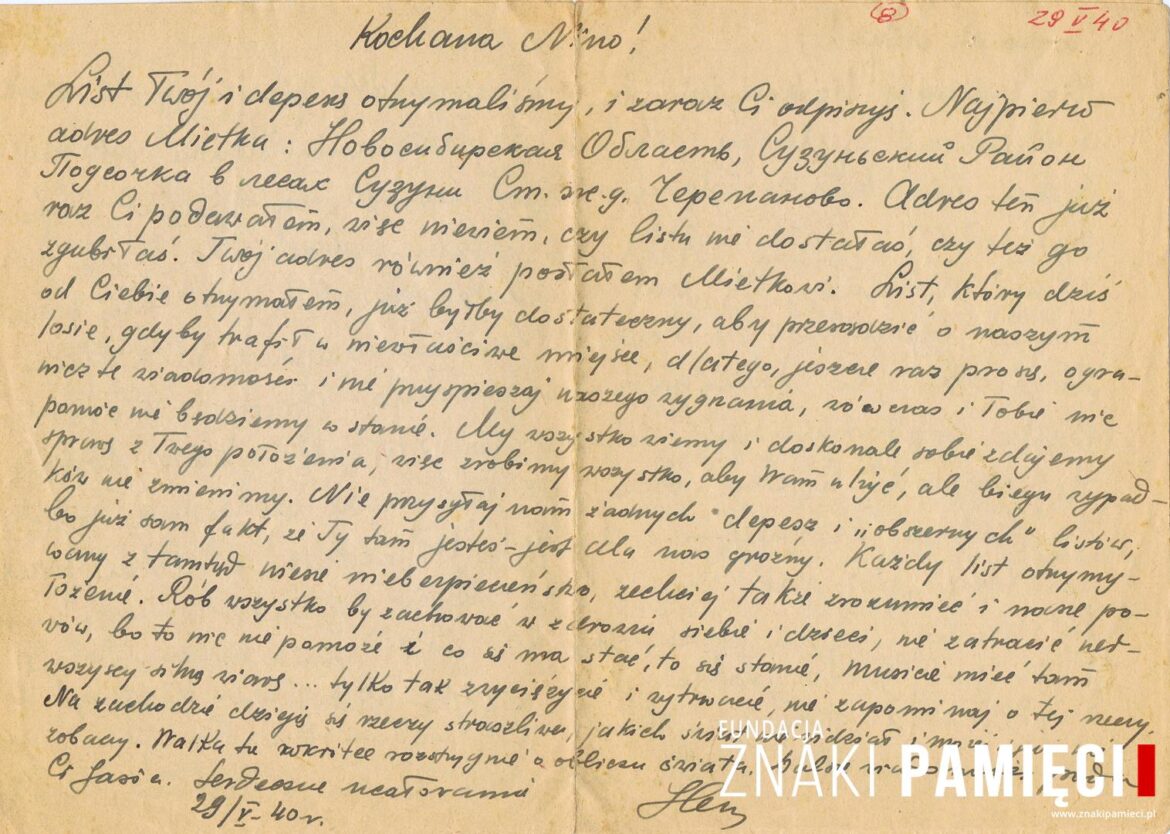 (8)
29 V 40
Kochana Nino!
List Twój i depesz otrzymaliśmy, i zaraz Ci odpisuję. Najpierw
adres Mietka: Новосибирская Область, Сузуньский Район
Подсочка в лесах Сузуни Ст. ж.g. Черепаново. Adres ten już
raz Ci podawałem, więc niewiem, czy listu nie dostałaś, czy też go
zgubiłaś. Twój adres również posłałem Mietkowi. List, który dziś
od Ciebie otrzymałem, już byłby dostateczny, aby przesądzić o naszym
losie, gdyby trafił w niewłaściwe miejsce, dlatego, jeszcze raz proszę, ogra-
nicz te wiadomości i nie przyspieszaj naszego wygnania, wówczas i Tobie nic
pomóc nie będziemy w stanie. My wszystko wiemy i doskonale sobie zdajemy
sprawę z Twego położenia, więc zrobimy wszystko, aby Wam ulżyć, ale biegu wypad-
ków nie zmienimy. Nie przysyłaj nam żadnych depesz i „obszernych" listów,
bo już sam fakt, że Ty tam jesteś - jest dla nas groźny. Każdy list otrzymy-
wany z tamtąd niesie niebezpieczeństwo, zechciej także zrozumieć i nasze po-
łożenie. Rób wszystko by zachować w zdrowiu siebie i dzieci, nie zatracić ner-
wów, bo to nic nie pomoże i co się ma stać, to się stanie, musicie mieć tam
wszyscy silną wiarę... tylko tak zwyciężycie i wytrwacie, nie zapominaj o tej rzeczy.
Na zachodzie dzieją się rzeczy straszliwe, jakich świat nie widział i
zobaczy. Walka ta wkrótce rozstrzygnie o obliczu świata.
Ci Jasia. Serdeczne ucałowania
29/V-40 r.
FUNDACJA
ZNAKI PAMIĘCI
www.znakipamieci.pl